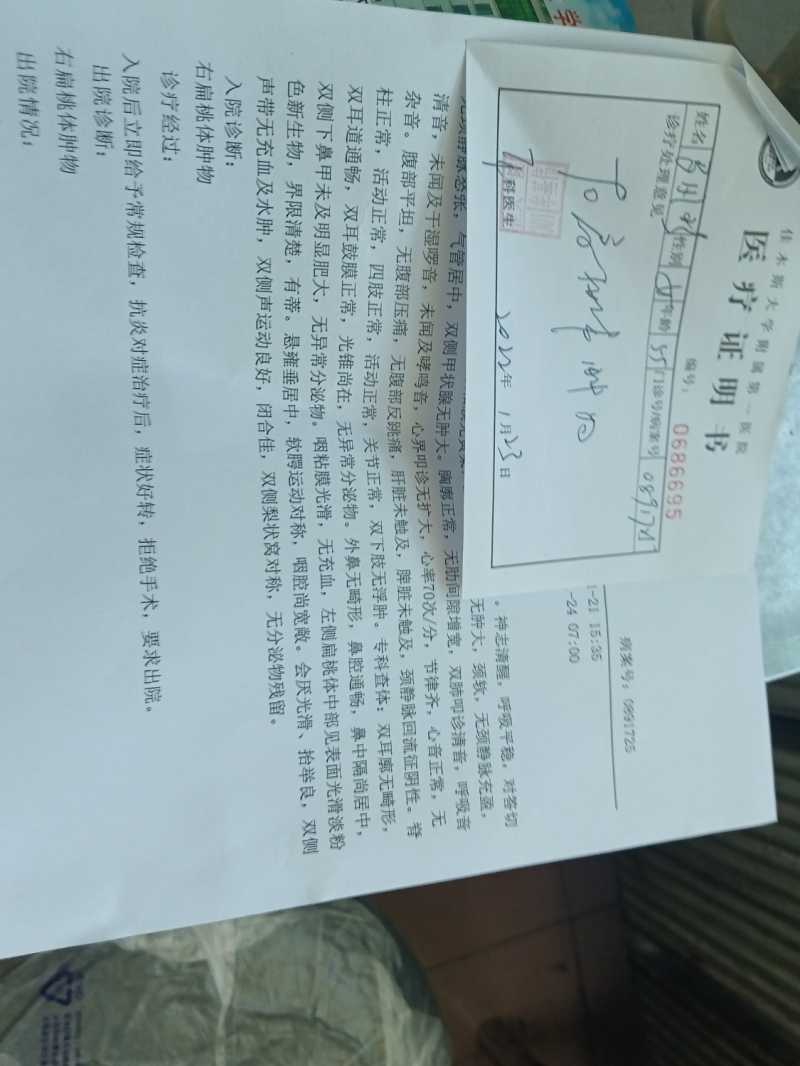 佳木斯大学附属第一医院
医疗证明书
编号：0686695
姓名 性别 女 年龄 55 门诊号/病案号 0891725
诊疗处理意见
右扁桃体肿物
科医生
2022年1月23日
病案号：0891725
-21 15:35
-24 07:00
。神志清醒，呼吸平稳，对答切
无肿大，颈软，无颈静脉充盈，
无颈静脉怒张，气管居中，双侧甲状腺无肿大。胸廓正常，无肋间隙增宽，双肺叩诊清音，呼吸音
清音，未闻及干湿啰音，未闻及哮鸣音，心界叩诊无扩大，心率70次/分，节律齐，心音正常，无
杂音。腹部平坦，无腹部压痛，无腹部反跳痛，肝脏未触及，脾脏未触及，颈静脉回流征阴性。脊
柱正常，活动正常，四肢正常，活动正常，关节正常，双下肢无浮肿。专科查体：双耳廓无畸形，
双耳道通畅，双耳鼓膜正常，光锥尚在，无异常分泌物。外鼻无畸形，鼻腔通畅，鼻中隔尚居中，
双侧下鼻甲未及明显肥大，无异常分泌物。咽粘膜光滑，无充血，左侧扁桃体中部见表面光滑淡粉
色新生物，界限清楚，有蒂。悬雍垂居中，软腭运动对称，咽腔尚宽敞。会厌光滑、抬举良，双侧
声带无充血及水肿，双侧声运动良好，闭合佳，双侧梨状窝对称，无分泌物残留。
入院诊断：
右扁桃体肿物
诊疗经过：
入院后立即给予常规检查，抗炎对症治疗后，症状好转，拒绝手术，要求出院。
出院诊断：
右扁桃体肿物
出院情况：